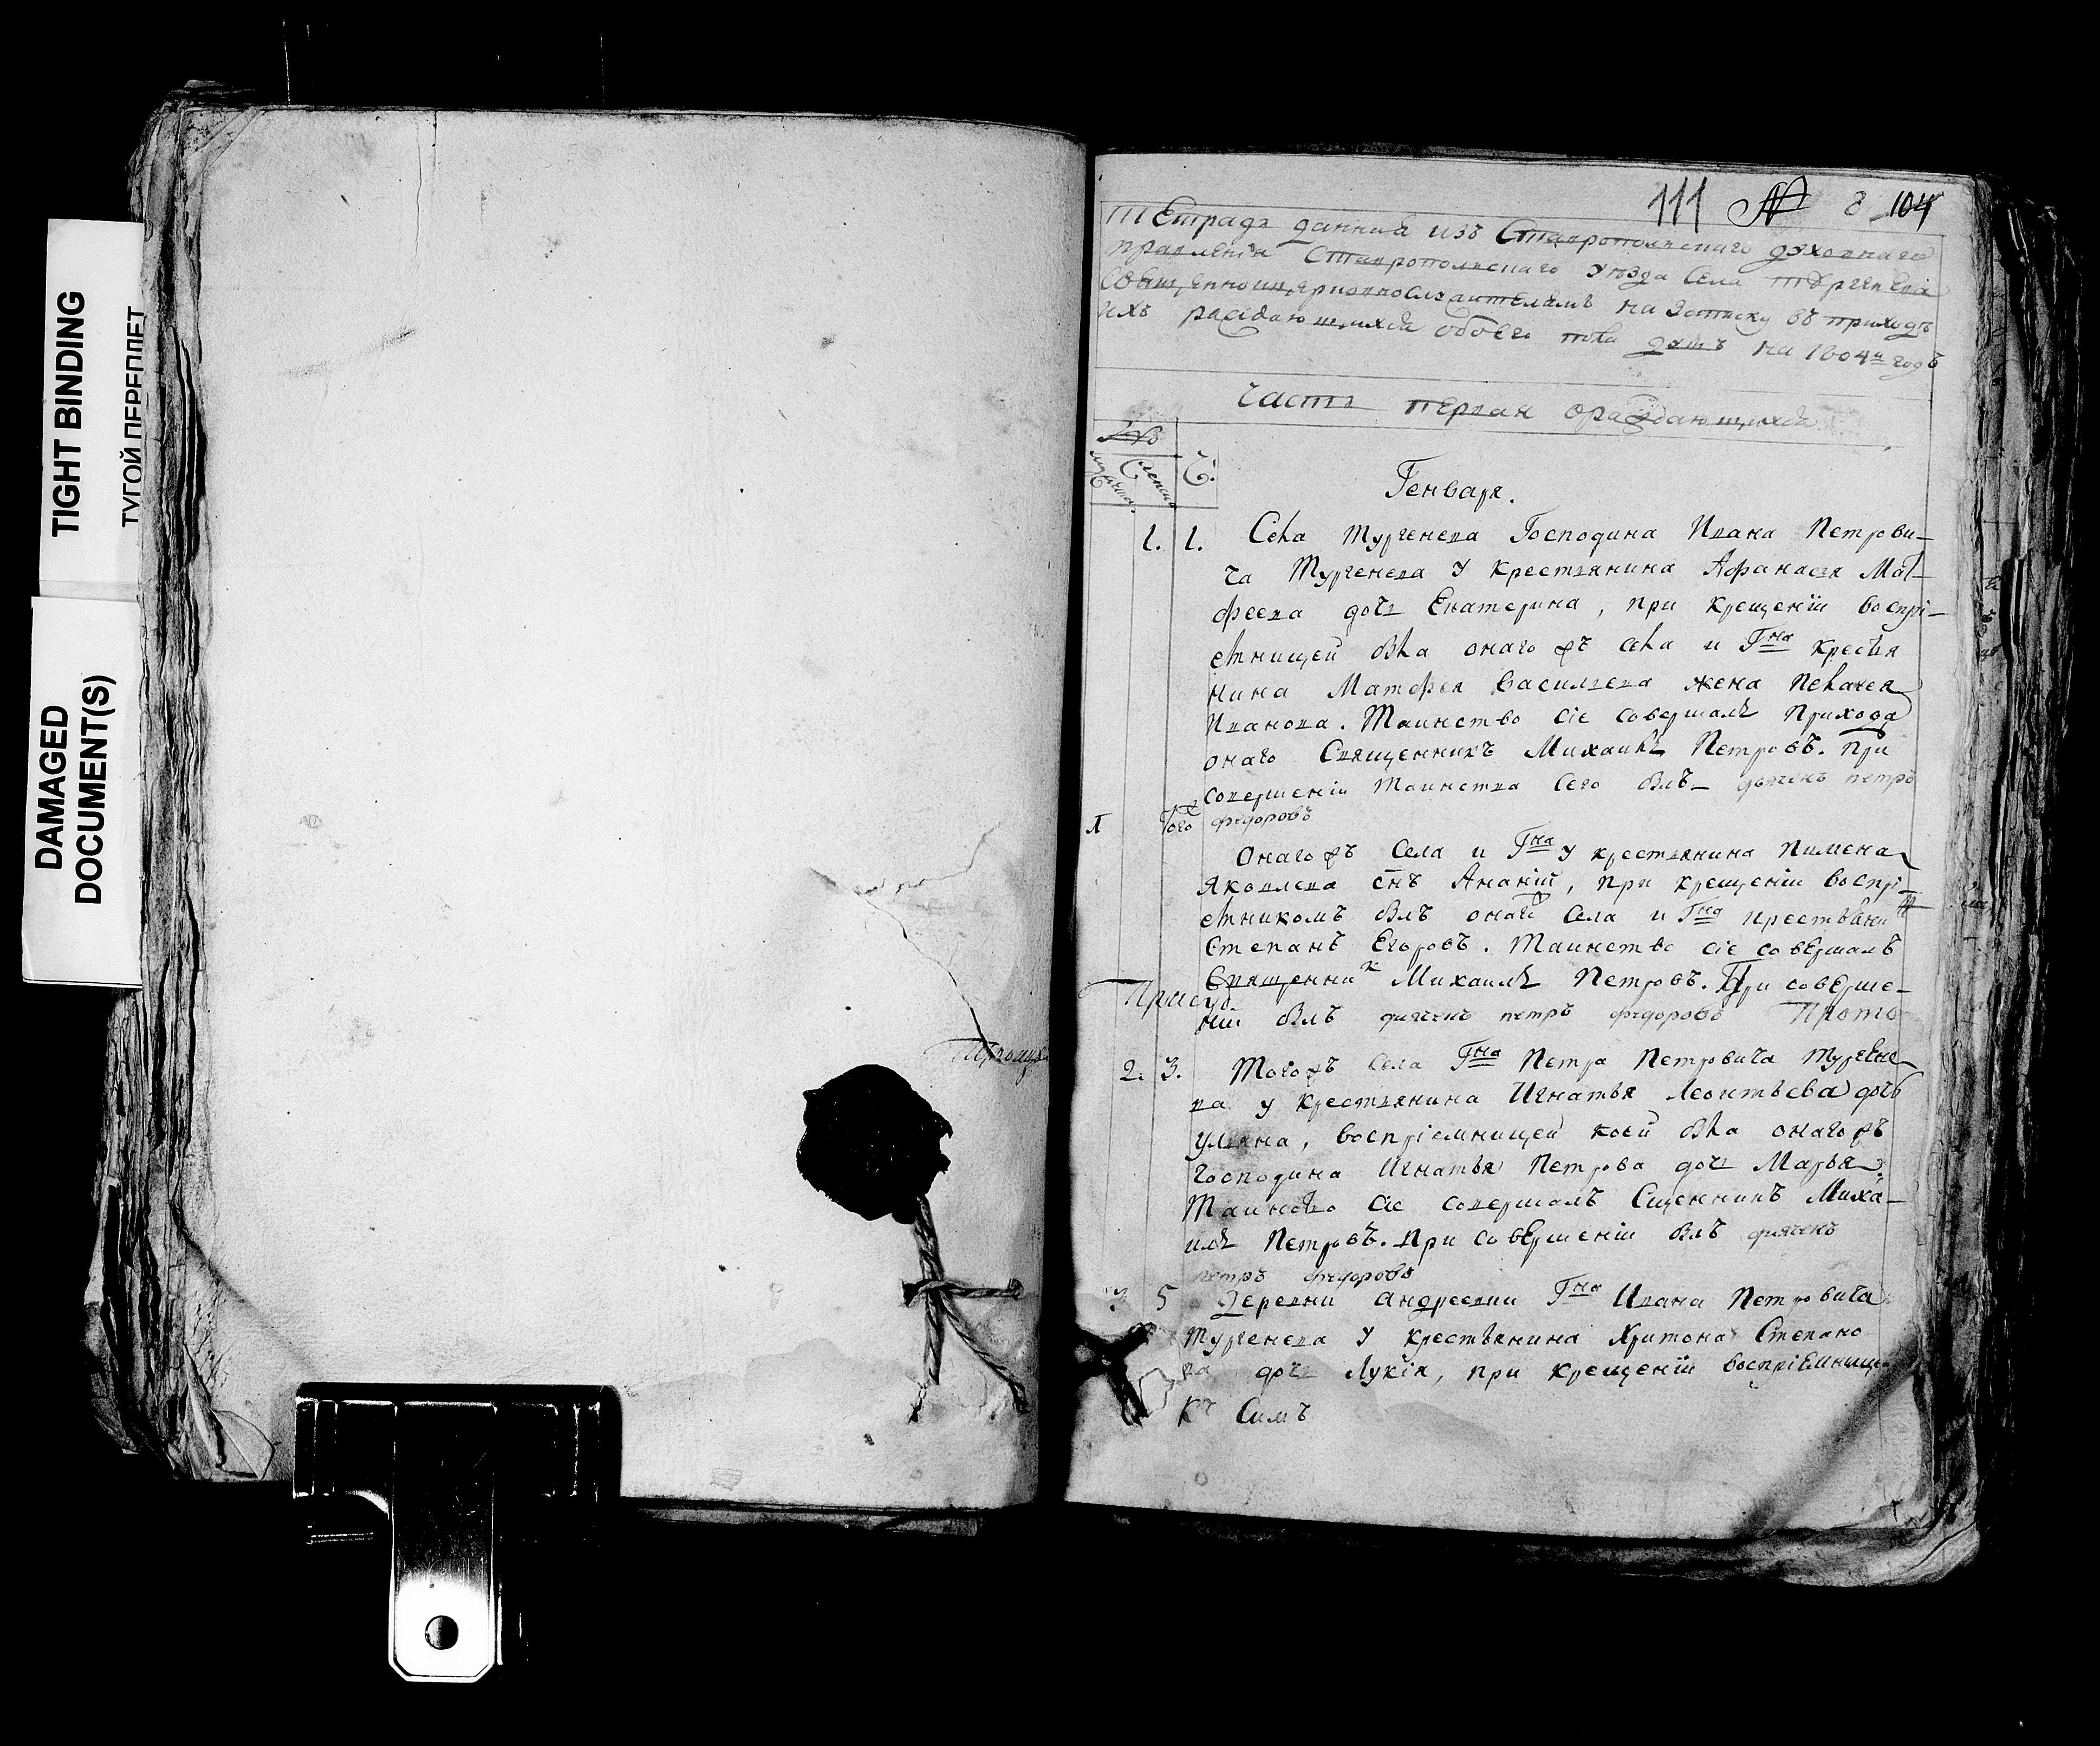 TIGHT BINDING
ТУГОЙ ПЕРЕПЛЕТ
DAMAGED
DOCUMENT(S)
111 8 104
Тетрадь данная изъ Ставропольскаго духовнаго
правленія Ставропольскаго уѣзда села Тургенева
священноцерковнослужителямъ на записку въ приходѣ
ихъ раждающихся обоего пола душъ на 1804й годъ
Часть первая о раждающихся
Ч.
Генваря.
1. 1. Села Тургенева Господина Ивана Петрови-
ча Тургенева у крестьянина Афанасья Мат-
феева дочь Екатерина, при крещеніи воспрі-
емницей была онаго жъ села и Гна крестья
нина Матфея Васильева жена Пелагея
Иванова. Таинство сіе совершалъ прихода
онаго Священникъ Михаилъ Петровъ. При
совершеніи Таинства сего былъ дьячекъ петръ
федоровъ
1 того
Онаго жъ Села и Гна у крестьянина Пимена
Яковлева снъ Ананій, при крещеніи воспрі-
емникомъ былъ онаго Села и Гна крестьяни
Степанъ Егоровъ. Таинство сіе совершалъ
Священник Михаилъ Петровъ. При соверше-
ніи былъ дьячекъ петръ федоровъ Прото
2. 3. Того жъ Села Гна Петра Петровича Тургене
ва у крестьянина Игнатья Леонтьева дочь
Ульяна, воспріемницей коей была онаго жъ
господина Игнатья Петрова дочь Марья.
Таинство сіе совершалъ Сщенникъ Миха-
илъ Петровъ. При совершеніи былъ дьячекъ
петръ федоровъ
3 5 Деревни Андреевки Гна Ивана Петровича
Тургенева у крестьянина Харитона Степано
ва дочь Лукія, при крещеніи воспріемниц
Къ Симъ